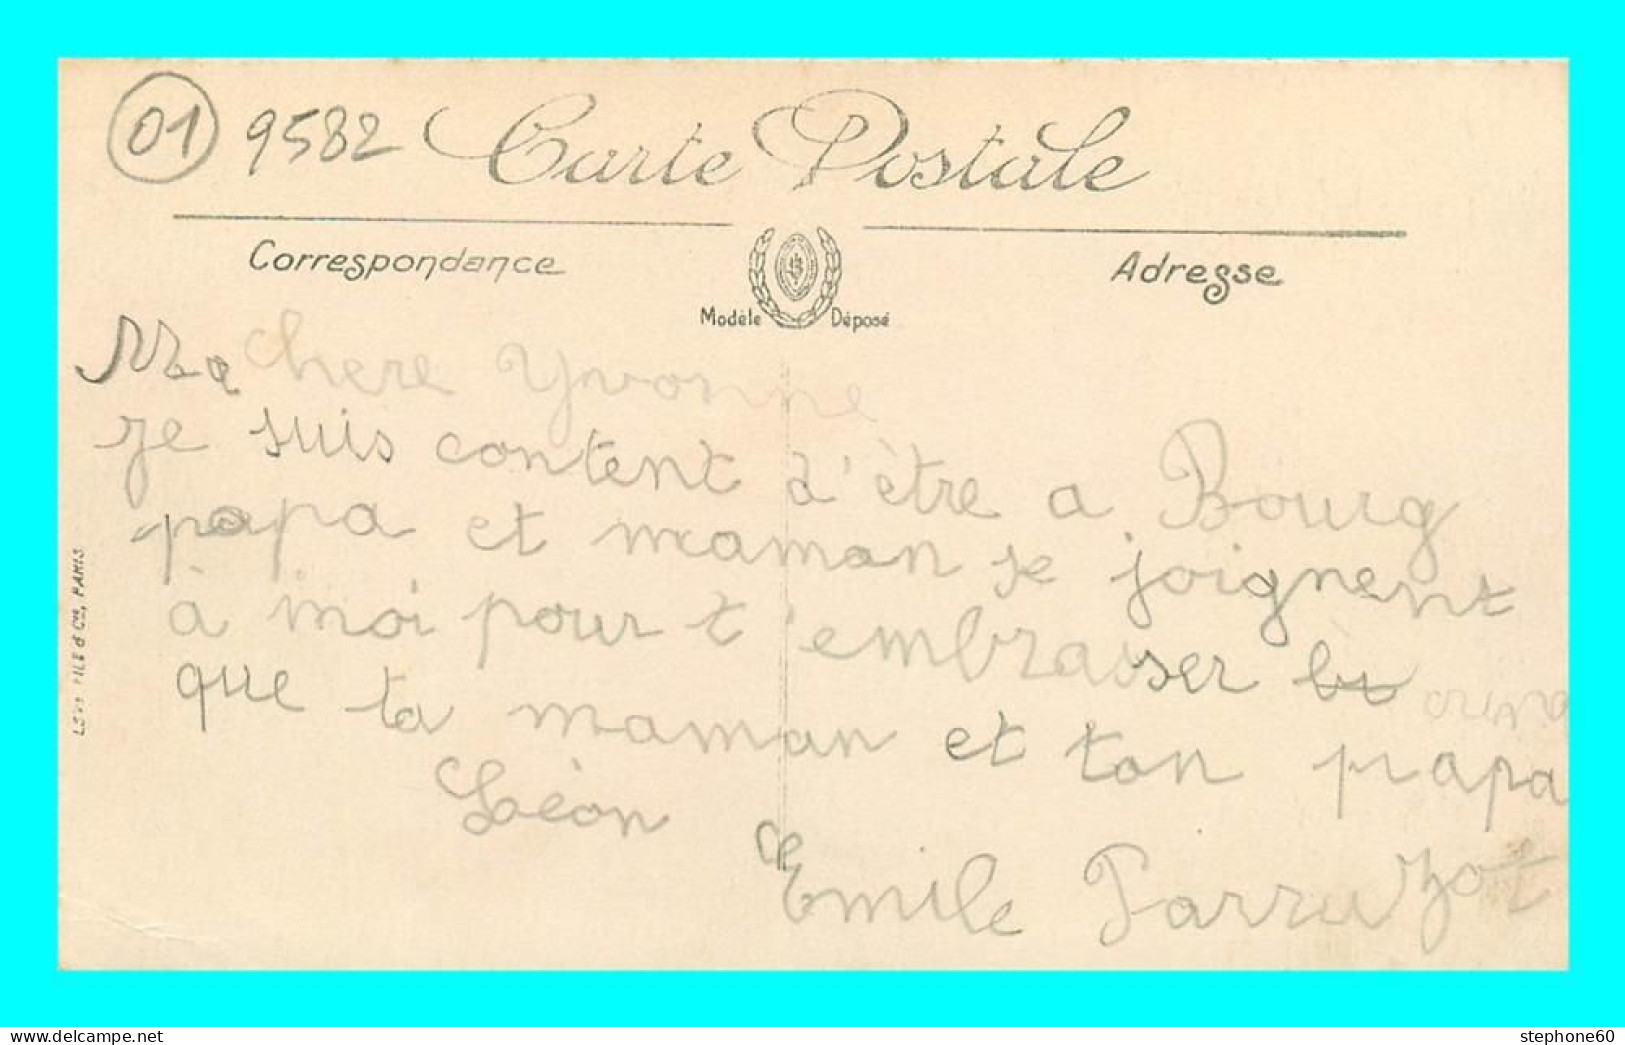 01 9582 Carte Postale
Correspondance
Adresse
Modèle Déposé
Ma chere Yvonne
je suis content d'être a Bourg
papa et maman se joignent
à moi pour t'embrasser
que ta maman et ton papa
Léon
Emile
LEVY FILS & Cie, PARIS
stephone60